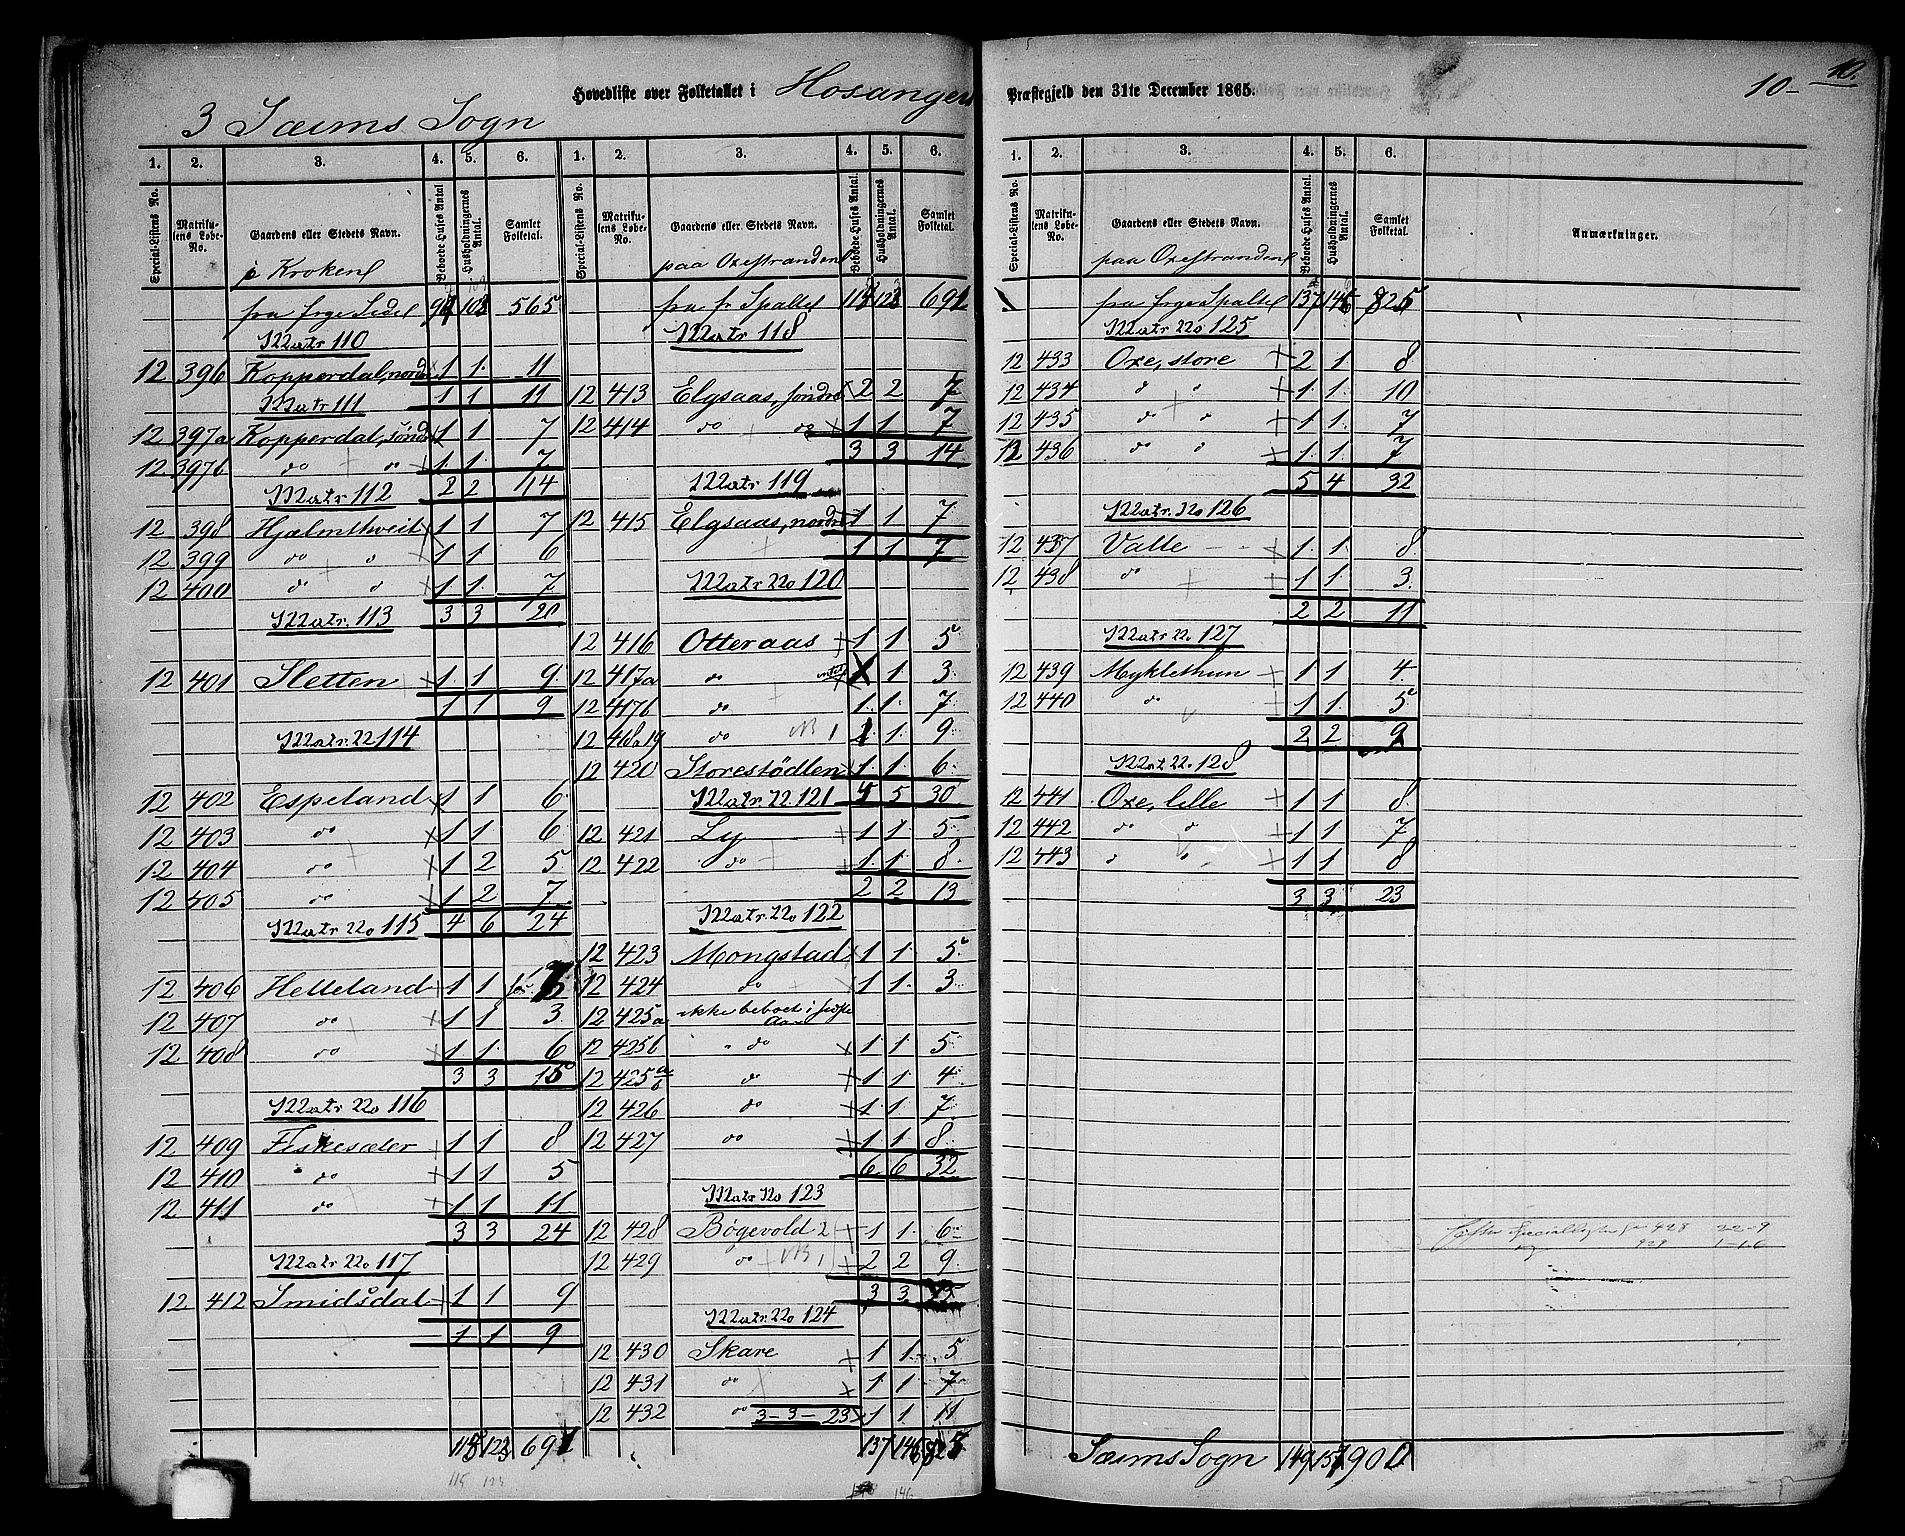 Hovedliste over Folketallet i Hosanger Præstegjeld den 31te December 1865.
10
10.
3 Sæims Sogn
1. 2. 3. 4. 5. 6.
Special-Listens No. Matrikulens Løbe-No. Gaardens eller Stedets Navn. Beboede Huses Antal Husholdningernes Antal. Samlet Folketal.
i Kroken
565
Matr 110
12 396 Kopperdal, nordre 1 1 11
1 1 11
Matr 111
12 397a Kopperdal, søndre 1 1 7
12 397b do do 1 1 7
2 2 14
Matr 112
12 398 Hjælmthveit 1 1 7
12 399 do d 1 1 6
12 400 do d 1 1 7
3 3 20
Matr. 113
12 401 Sletten 1 1 9
1 1 9
Matr. No 114
12 402 Espeland 1 1 6
12 403 do 1 1 6
12 404 do 1 2 5
12 405 do 1 2 7
4 6 24
Matr No 115
12 406 Helleland 1 1
12 407 do 1 1 3
12 408 do 1 1 6
3 3 15
Matr No 116
12 409 Fiskesæter 1 1 8
12 410 do 1 1 5
12 411 do 1 1 11
3 3 24
Matr No 117
12 412 Smidsdal 1 1 9
1 1 9
123 691
115 123
1. 2. 3. 4. 5. 6.
Special-Listens No. Matrikulens Løbe-No. Gaardens eller Stedets Navn. Beboede Huses Antal Husholdningernes Antal. Samlet Folketal.
paa Oxestranden
fra fr Spalte
Matr 118
12 413 Elgsaas, søndre 2 2 7
12 414 do do 1 1 7
3 3 14
Matr 119
12 415 Elgsaas, nordre 1 1 7
1 1 7
Matr No 120
12 416 Otteraas 1 1 5
12 417a do 1 1 3
12 417b do 1 1 7
12 418a19 do NB 1 1 9
12 420 Storestødlen 1 1 6
5 30
Matr. No. 121
12 421 Ly 1 1 5
12 422 do 1 1 8
2 2 13
Matr No 122
12 423 Mongstad 1 1 5
12 424 do 1 1 3
12 425a ikke beboet i sidste Aar
12 425b do 1 1 5
12 425 do 1 1 4
12 426 do 1 1 7
12 427 do 1 1 8
6 6 32
Matr No 123
12 428 Bøgevold 2 1 1 6
12 429 do NB 1 2 2 9
3 3
Matr No 124
12 430 Skare 1 1 5
12 431 do 1 1 7
12 432 do 1 1 11
3 - 3 - 23
137 146 825
146
1. 2. 3. 4. 5. 6.
Special-Listens No. Matrikulens Løbe-No. Gaardens eller Stedets Navn. Beboede Huses Antal. Husholdningernes Antal. Samlet Folketal. Anmærkninger.
paa Oxestranden
137 146 825
Matr No 125
12 433 Oxe, store 2 1 8
12 434 d d 1 1 10
12 435 do d 1 1 7
12 436 do d 1 1 7
5 4 32
Matr. No 126
12 437 Valle 1 1 8
12 438 do 1 1 3
2 2 11
Matr No. 127
12 439 Myklethun 1 1 4
12 440 do 1 1 5
2 2 9
Matr No. 128
12 441 Oxe, lille 1 1 8
12 442 do d 1 1 7
12 443 d do 1 1 8
3 3 23
Efter Speciallisten 428 22-9
429 1-1-6
Sæims Sogn 149 157 900